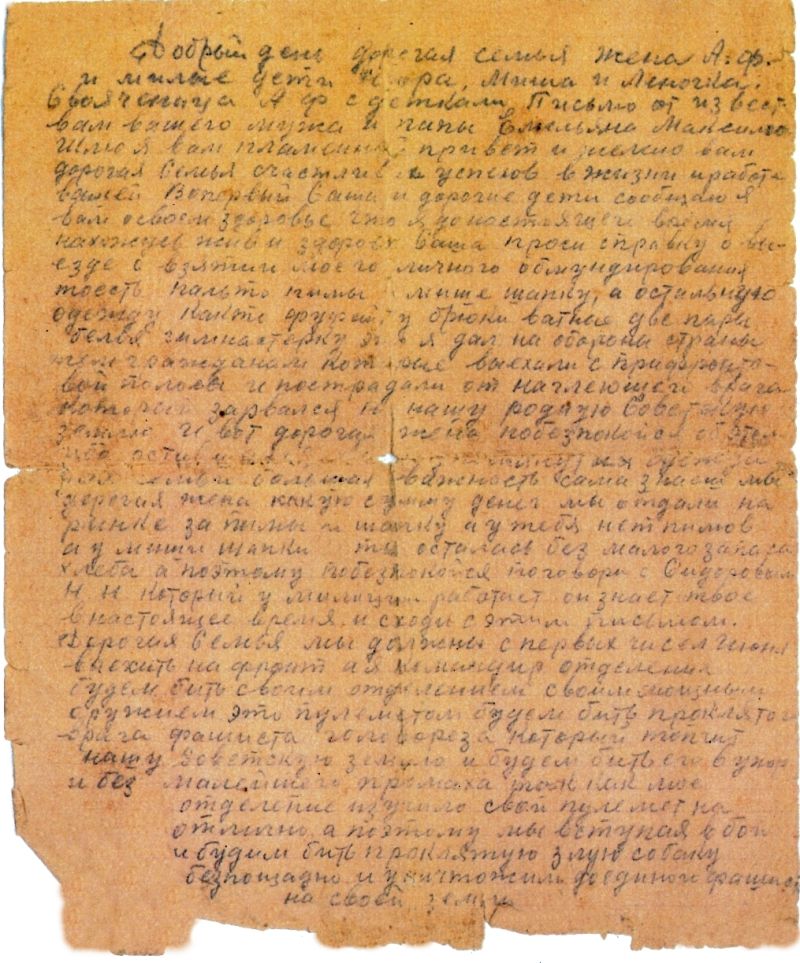 Добрый день дорогая семья жена А.Ф.
и милые дети Миша и Леночка.
Свояченица А Ф с детками Письмо от извест
вам вашего мужа и папы Емельяна
Шлю я вам пламенный привет и желаю вам
дорогая Семья счастливых успехов в жизни и работе
вашей Вопервый Саша и дорогие дети сообщаю я
вам освоем здоровье что я донастоящего время
нахожусь жив и здоров Саша проси справку о вы
езде о взятии моего личного обмундирования
тоесть пальто пимы Мише шапку, а остальную
одежду както фуфайку брюки ватные две пары
белья гимнастерку это я дал на оборону страны
тем гражданам которые выехали с прифронто-
вой полосы и пострадали от наглеющего врага
который зарвался на нашу родную Советскую
землю и вот дорогая жена побезпокойся обэтом
одежда
для семьи большая важность сама знаеш мы
дорогая жена какую сумму денег мы отдали на
рынке за пимы и шапку а у тебя нет пимов
а у Миши шапки ты осталась без малого запаса
хлеба а поэтому побезпокойся поговори с Сидоровым
Н Н который у милиции работает он знает твое
в настоящее время и сходи с этим письмом.
Дорогая Семья мы должны с первых чисел Июня
выехать на фронт а я командир отделения
будем бить своим отделением своим мощным
оружием это пулеметом будем бить проклятого
врага фашиста головореза который топчит
нашу Советскую землю и будем бить его в упор
и без малейшего промаха так как мое
отделение изучило свой пулемет на
отлично а поэтому мы вступая в бой
и будим бить проклятую злую собаку
безпощадно и уничтожим доединого фашиста
на своей земли